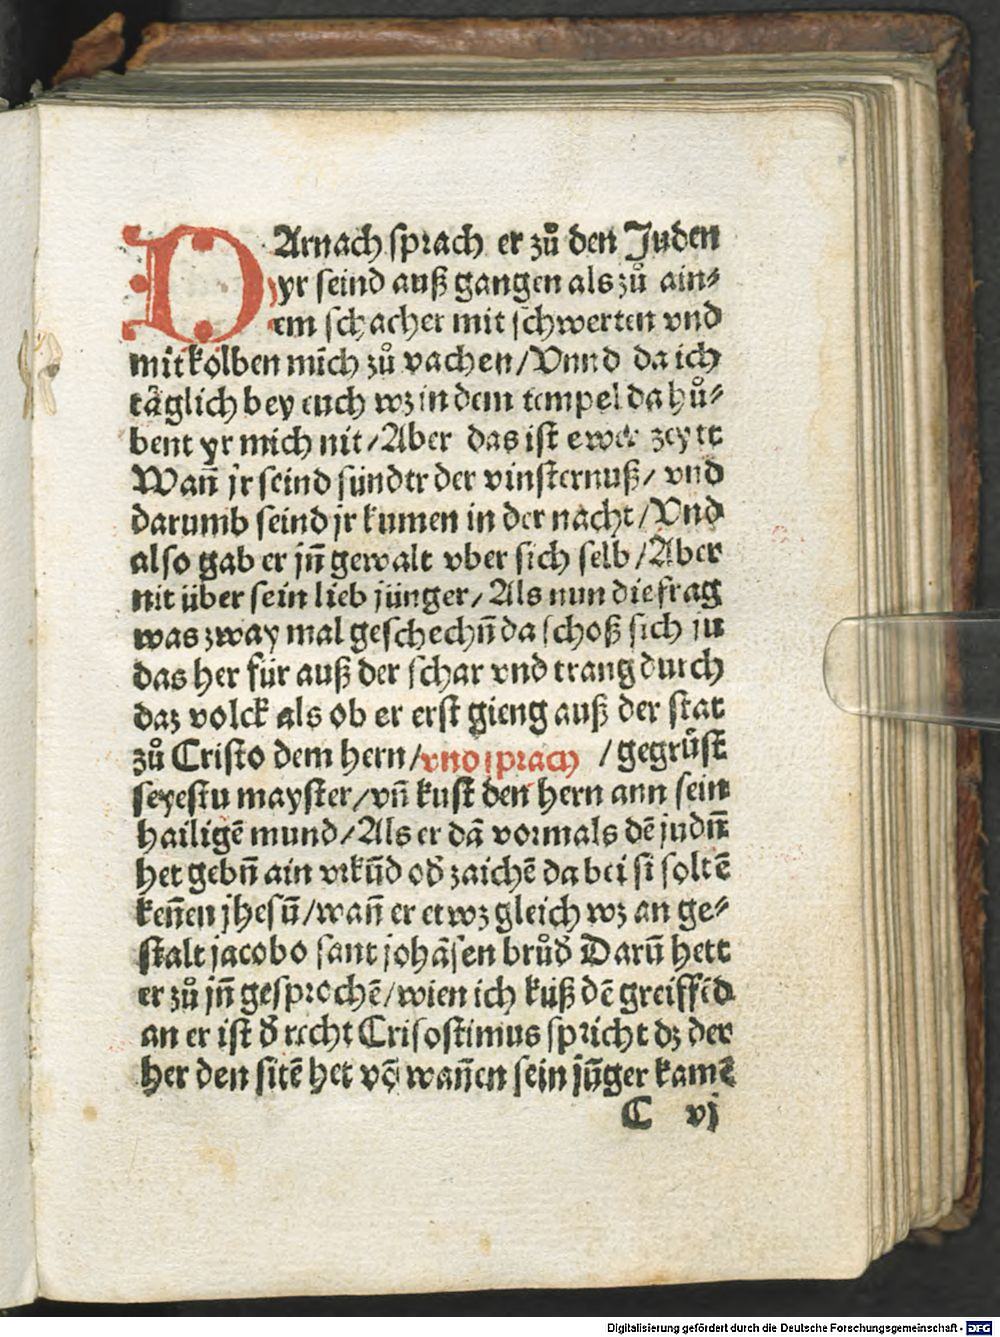 DArnach sprach er zů den Juden
yr seind auß gangen als zů ain⸗
em schacher mit schwerten vnd
mit kolben mich zů vachen/Vnnd da ich
täglich bey euch wz in dem tempel da hů⸗
bent yr mich nit/Aber das ist ewer zeytt
Wañ jr seind sünder der vinsternuß/ vnd
darumb seind jr kumen in der nacht/Vnd
also gab er jñ gewalt vber sich selb/Aber
nit über sein lieb jünger/Als nun die frag
was zway mal geschechñ da schoß sich ju
das her für auß der schar vnd trang durch
daz volck als ob er erst gieng auß der stat
zů Cristo dem hern/vnd sprach /gegrüst
seyestu mayster/vñ kust den hern ann sein
hailigē mund/Als er dā vormals dē judñ
het gebñ ain vrkūd oď zaichē da bei si soltē
keñen jhesū/wañ er etwz gleich wz an ge⸗
stalt jacobo sant johāsen brůď Darū hett
er zů jñ gesprochē/wien ich kuß dē greiffēd
an er ist ď recht Crisostimus spricht dz der
her den sitē het vō wañen sein jūger kamē
C vj
Digitalisierung gefördert durch die Deutsche Forschungsgemeinschaft - DFG